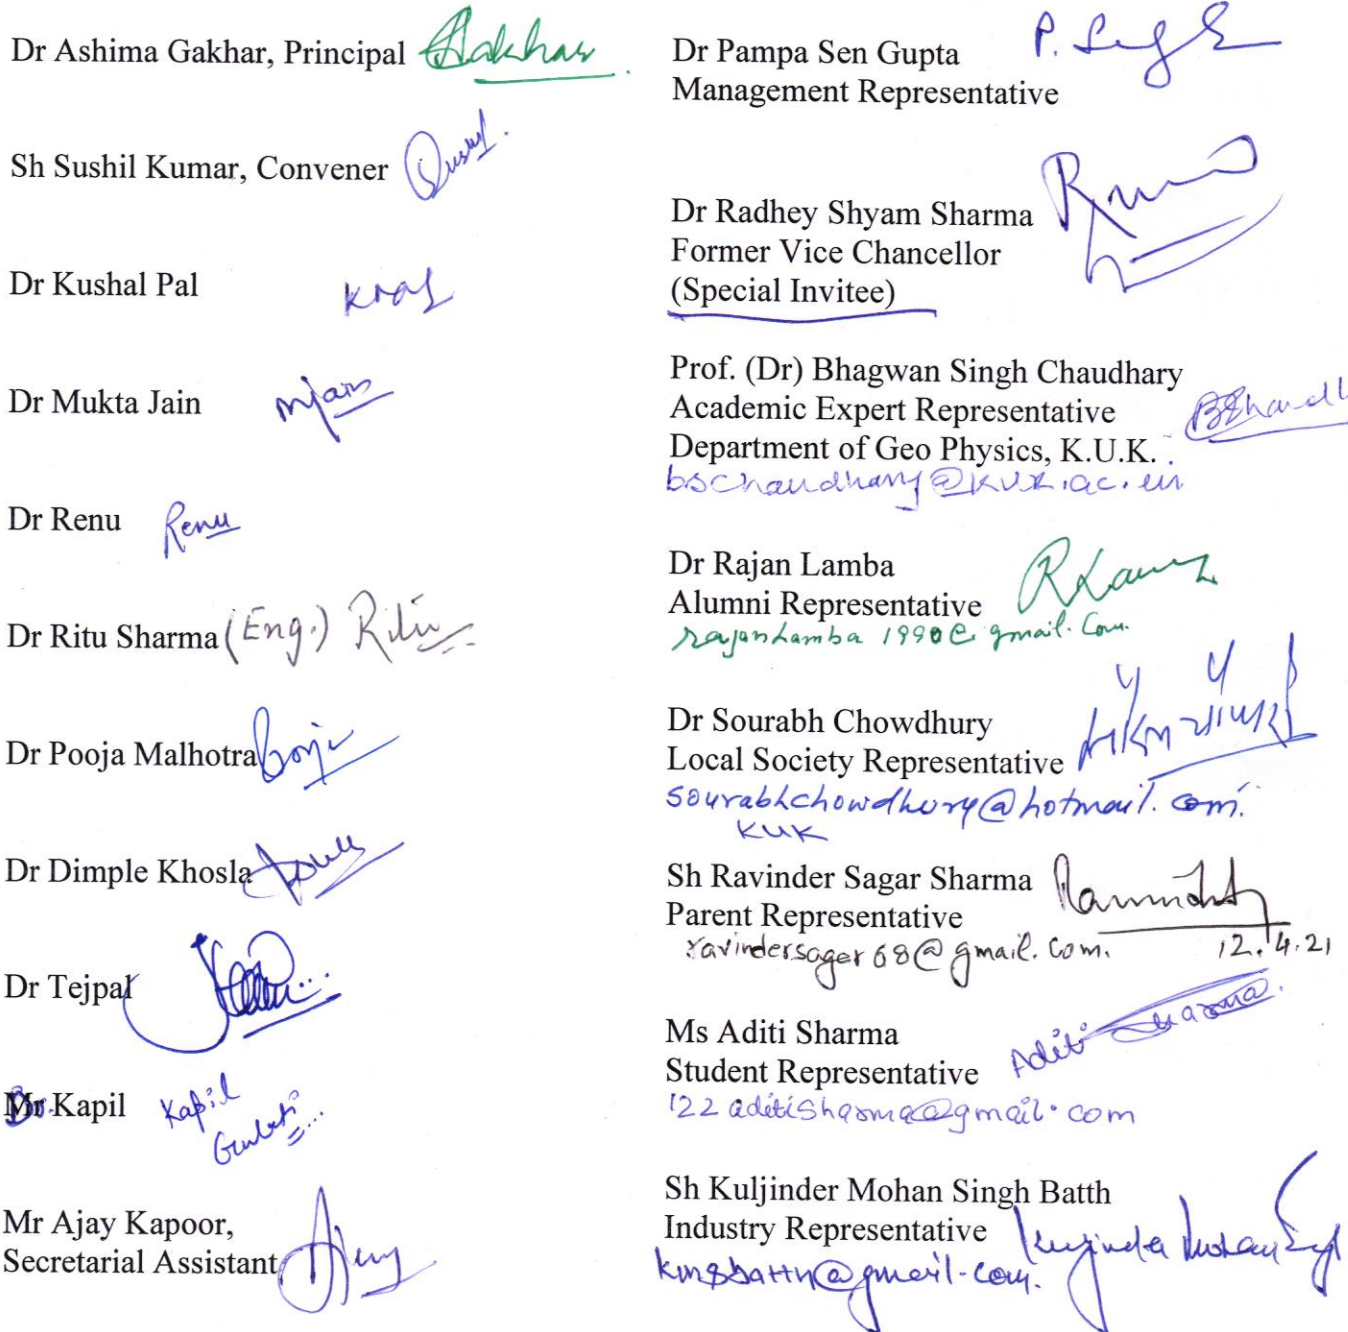 Dr Ashima Gakhar, Principal
Sh Sushil Kumar, Convener
Dr Kushal Pal
Dr Mukta Jain
mjain
Dr Renu
Renu
Dr Ritu Sharma (Eng.) Ritu
Dr Pooja Malhotra
Dr Dimple Khosla
Dr Tejpal
Kapil
Mr Kapil
Gulati
Mr Ajay Kapoor,
Secretarial Assistant
Dr Pampa Sen Gupta
Management Representative
Dr Radhey Shyam Sharma
Former Vice Chancellor
(Special Invitee)
Prof. (Dr) Bhagwan Singh Chaudhary
Academic Expert Representative
Department of Geo Physics, K.U.K.
bschaudhary@kuk.ac.in
Dr Rajan Lamba
Alumni Representative
rajanlamba1990@gmail.com
Dr Sourabh Chowdhury
Local Society Representative
sourabhchowdhury@hotmail.com.
KUK
Sh Ravinder Sagar Sharma
Parent Representative
ravindersager68@gmail.com. 12.4.21
Ms Aditi Sharma
Aditi Sharma
Student Representative
122aditisharma@gmail.com
Sh Kuljinder Mohan Singh Batth
Industry Representative Kuljinder Mohan Singh
kmsbatth@gmail.com.